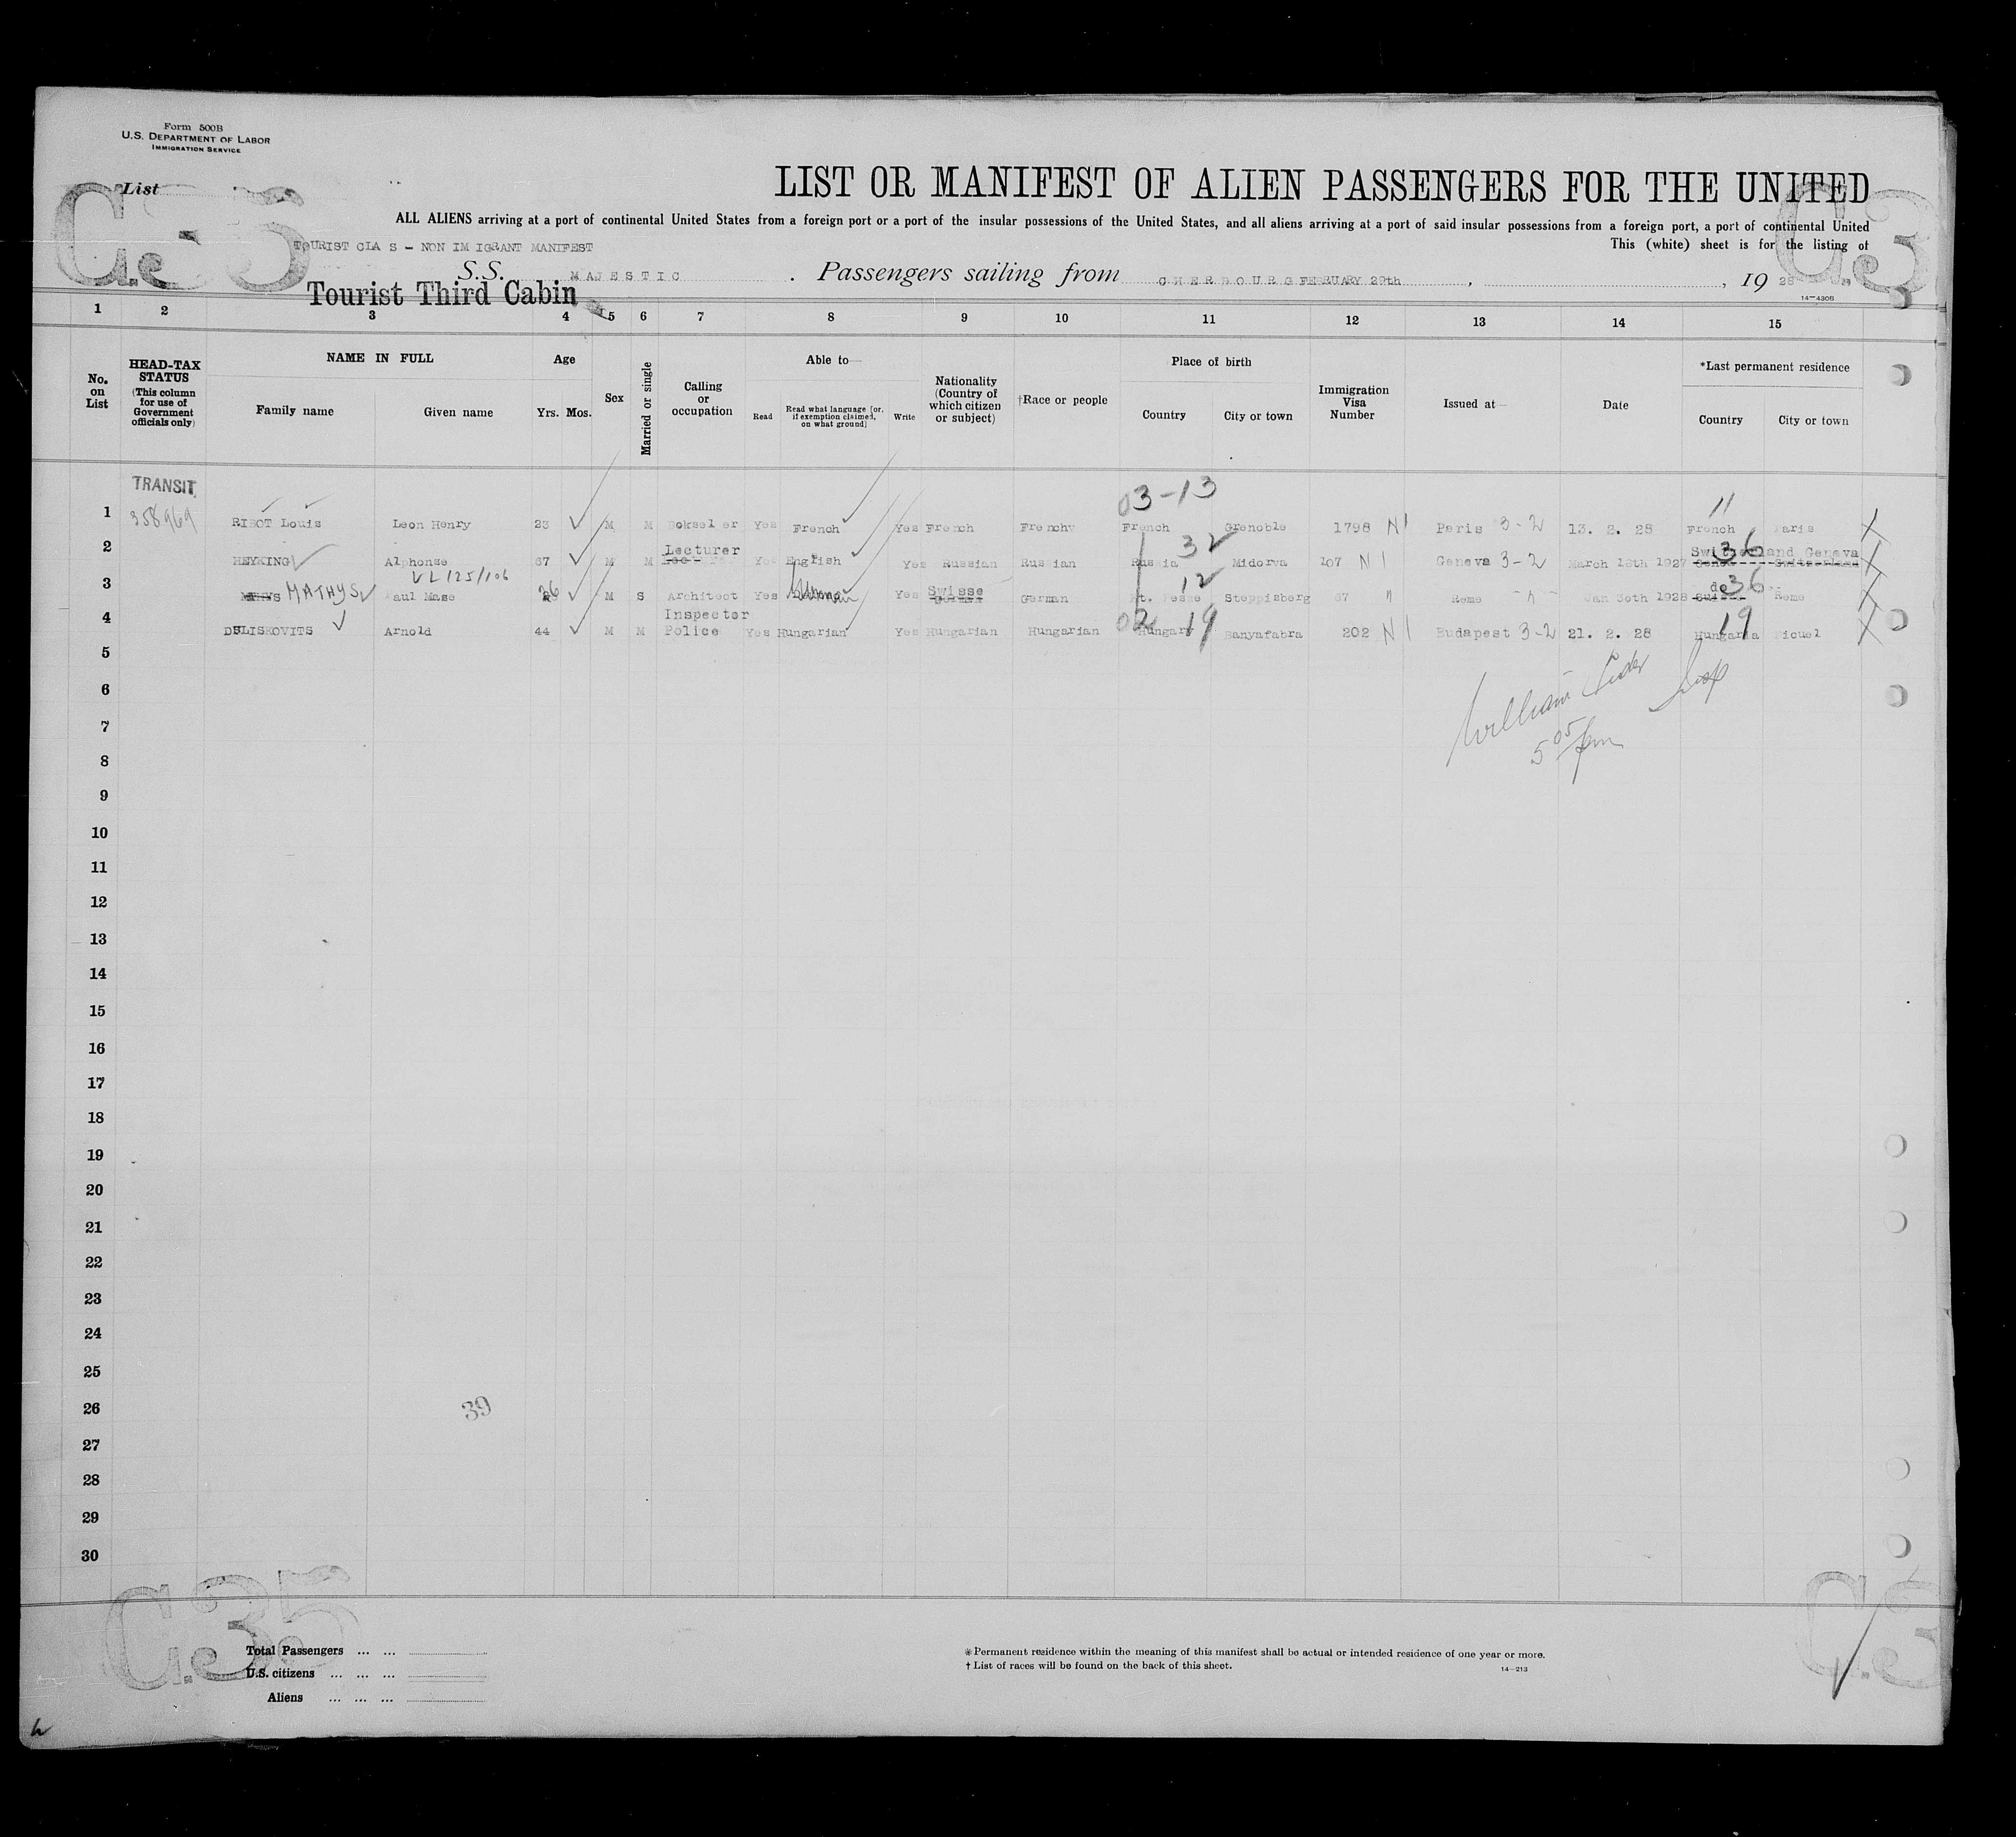 Form 500B
U.S. DEPARTMENT OF LABOR
IMMIGRATION SERVICE
List
LIST OR MANIFEST OF ALIEN PASSENGERS FOR THE UNITED
ALL ALIENS arriving at a port of continental United States from a foreign port or a port of the insular possessions of the United States, and all aliens arriving at a port of said insular possessions from a foreign port, a port of continental United
TOURIST CLA S - NON IM IGRANT MANIFEST
This (white) sheet is for the listing of
S.S. MAJESTIC . Passengers sailing from CHERBOURG FEBRUARY 29th , , 19 28
Tourist Third Cabin
14-430B
1 2 3 4 5 6 7 8 9 10 11 12 13 14 15
No. on List
HEAD-TAX STATUS (This column for use of Government officials only)
NAME IN FULL
Family name
Given name
Age
Yrs. Mos.
Sex
Married or single
Calling or occupation
Able to—
Read
Read what language [or, if exemption claimed, on what ground]
Write
Nationality (Country of which citizen or subject)
†Race or people
Place of birth
Country
City or town
Immigration Visa Number
Issued at—
Date
*Last permanent residence
Country
City or town
TRANSIT
03-13
11
1 358969 RIBOT Louis Leon Henry 23 M M Yes French Yes French French French Grenoble 1798 N1 Paris 3-2 13. 2. 28 French Paris
Lecturer
32
Switzerland Geneva
36
2 HEYKING Alphonse 67 M M Yes English Yes Russian Russian Russia Midorva 107 N1 Geneva 3-2 March 18th 1927 Switzerland
VL125/106
26
Swisse
12
do
36
3 MATHYS aul Mase M S Architect Yes German Yes German German Steppisberg 67 Rome Jan 30th 1928 Rome
Inspector
02 19
19
4 DELISKOVITS Arnold 44 M M Police Yes Hungarian Yes Hungarian Hungarian Hungary Banyafabra 202 N1 Budapest 3-2 21. 2. 28 Hungaria Ficuel
5
William
6
7
5 05 pm
8
9
10
11
12
13
14
15
16
17
18
19
20
21
22
23
24
25
26
39
27
28
29
30
G.35
Total Passengers ... ...
U.S. citizens ... ... ...
Aliens ... ... ...
*Permanent residence within the meaning of this manifest shall be actual or intended residence of one year or more.
†List of races will be found on the back of this sheet.
14-213